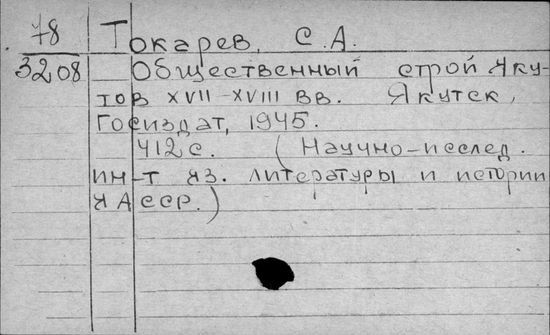 78
3208
Токарев, С.А.
Общественный строй яку-
тов XVII-XVIII вв. Якутск,
Госиздат, 1945.
412 с. (Научно-исслед.
ин-т яз. литературы и истории
ЯАССР.)